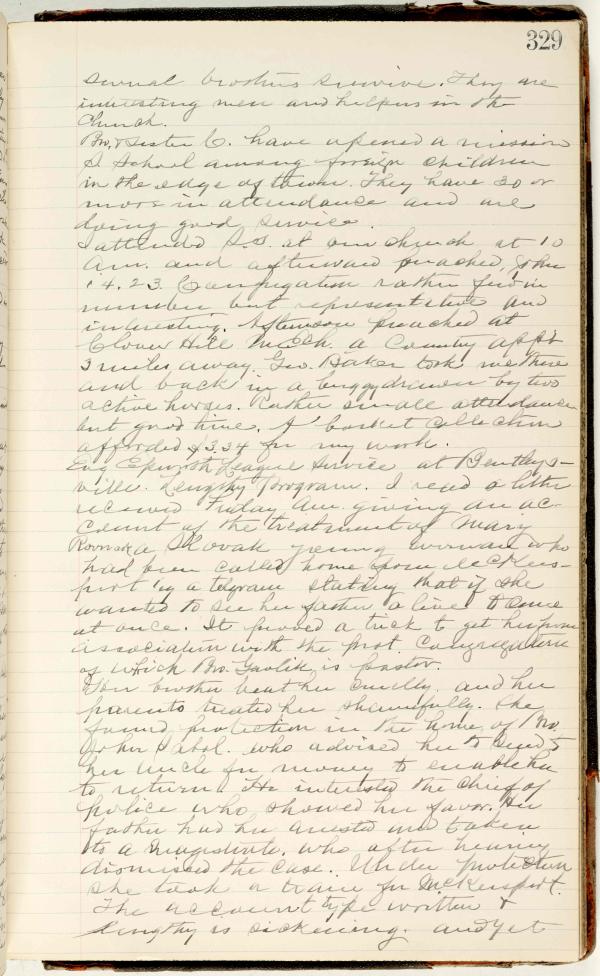 329
several brothers survive. They are
interesting men and helpers in the
Church.
Bro. & Sister C. have opened a mission
S School among foreign children
in the edge of town. They have 30 or
more in attendance and are
doing good service.
I attended S.S. at our church at 10
a.m. and afterward preached, John
14.23. Congregation rather few in
number but representative and
interesting. Afternoon preached at
Clover Hill M.E. Ch. a Country appt
3 miles away. Geo. Baker took me there
and back in a buggy drawn by two
active horses. Rather small attendance
but good time. A basket Collection
afforded $3.34 for my work.
Evg Epworth League Service at Bentleys-
ville. Lengthy Program. I read a letter
received Friday a.m. giving an ac-
count of the treatment of Mary
a Slovak young woman who
had been called home from McKees-
port by a telegram stating that if she
wanted to see her father alive to come
at once. It proved a trick to get her from
association with the prot. Congregation
of which Bro. Gavlik is pastor.
Her brother beat her cruelly, and her
parents treated her shamefully. She
found protection in the home of Bro.
John Sabol. who advised her to send to
her Uncle for money to enable her
to return. He interested the chief of
police who showed her favor. Her
father had her arrested and taken
to a magistrate. who after hearing
dismissed the case. Under protection
she took a train for McKeesport.
The account type written &
lengthy is sickening. and yet